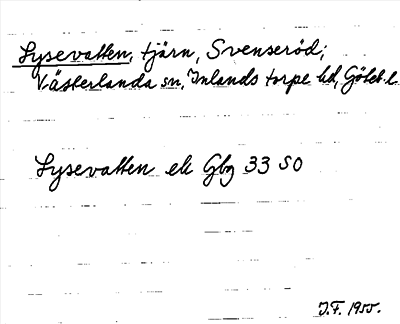 Lysevatten, tjärn, Svenseröd;
Västerlanda sn, Inlands torpe hd, Göteb. l.
Lysevatten ek Gbg 33 SO
J.F. 1955.